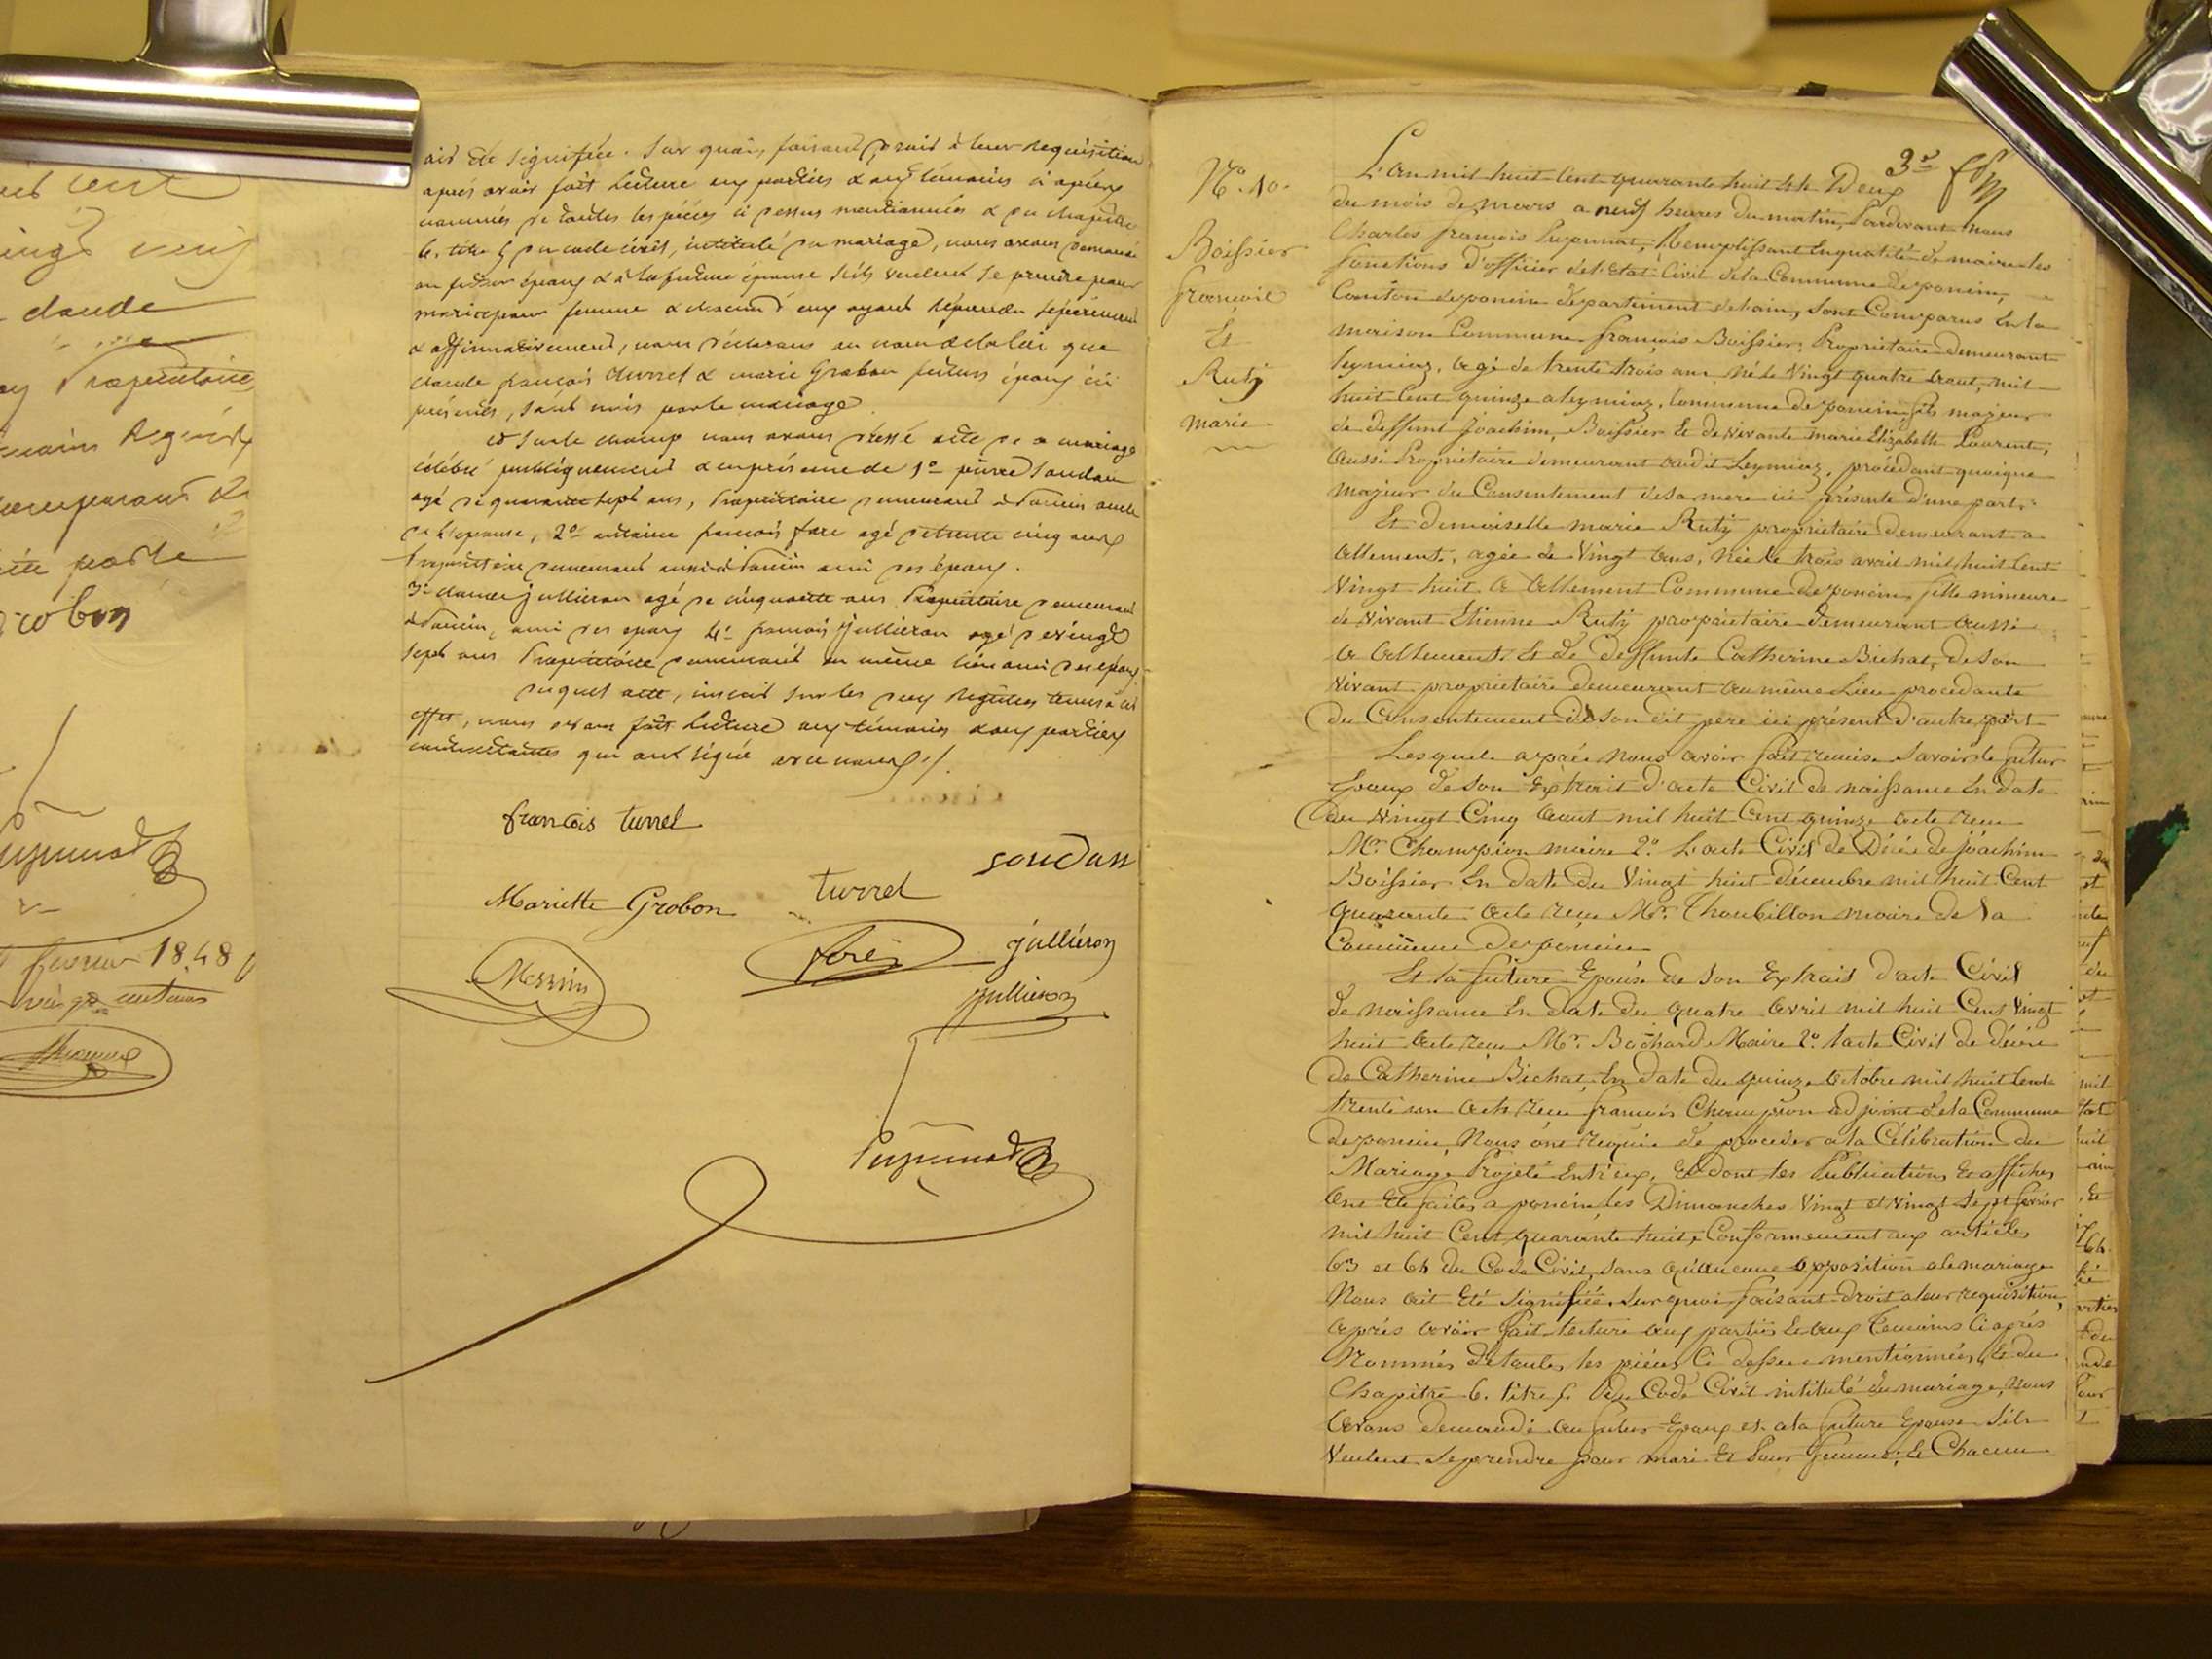 claude
Propriétaire
18.48
ait été signifiée. Sur quoi, faisant droit à leur requisition
après avoir fait lecture aux parties & aux témoins ci après
nommés de toutes les pièces ci dessus mentionnées & du chapitre
6. titre 5 du code civil, intitulé du mariage, nous avons demandé
au futur époux & à la future épouse s'ils veulent se prendre pour
mari & pour femme & chacun d'eux ayant répondu séparément
& affirmativement, nous déclarons au nom de la loi que
claude françois turrel & marie Grobon futurs époux ici
présents, sont unis par le mariage.
Et sur le champ nous avons dressé acte de ce mariage
célébré publiquement & en présence de 1º pierre Soudan
agé de quarante sept ans, Propriétaire demeurant à Poncin oncle
de l'epouse, 2º antoine françois fore agé de trente cinq ans
Propriétaire demeurant aussi à Poncin ami des époux.
3º claude jullieron agé de cinquante ans Propriétaire demeurant
à Poncin, ami des epoux 4º françois Jullieron agé de vingt
sept ans Propriétaire demeurant au même lieu ami des époux
duquel acte, inscrit sur les deux régistres tenus à cet
effet, nous avons fait lecture aux témoins & aux parties
contractantes qui ont signé avec nous ./.
francois turrel
soudan
Mariette Grobon
turrel
forè
jullieron
jullieron
N.º 10.
Boissier
françois
Et
Ruty
marie
3e
L'an mil huit Cent quarante huit et le Deux
du mois de mars a neuf heures du matin, Pardevant nous
Charles françois Puyonnat, Remplissant En qualité de maire les
fonctions d'officier de l'Etat Civil de la Commune de poncin,
Canton de poncin département de l'ain, Sont Comparus En la
maison Commune françois Boissier, Propriétaire demeurant
Leymiaz, agé de trente trois ans, né le Vingt quatre aout, mil
huit Cent quinze a leymiaz, Commune de poncin fils majeur
de deffunt Joachim, Boissier Et de vivante marie Elizabeth Laurent,
aussi Propriétaire demeurant audit Leymiaz, procédant quoique
majeur du Consentement de sa mere ici présente d'une part.
Et demoiselle marie Ruty propriétaire demeurant a
allement, agée de Vingt ans, Née le trois avril mil huit Cent
Vingt huit a allement Commune de poncin fille mineure
de Vivant Etienne Ruty propriétaire demeurant aussi
a allement Et de deffunte Catherine Bichat, de son
vivant propriétaire demeurant au même Lieu procédante
du Consentement de son dit père ici présent d'autre part
Lesquels après nous avoir fait remise Savoir le futur
Epoux de son Extrait d'acte Civil de naissance En date
du Vingt Cinq aout mil huit Cent quinze acte reçu
Mr. Champion maire 2º. L'acte Civil de Décès de joachim
Boissier En date du Vingt huit décembre mil huit Cent
quarante acte reçu Mr. Thoubillon maire de la
Commune de poncin
Et la future Epouse de son Extrait d'acte Civil
de naissance En date du quatre avril mil huit Cent Vingt
huit acte reçu Mr. Bochard Maire 2º. l'acte Civil de décès
de Catherine Bichat, En date du quinze octobre mil huit Cent
trente un acte reçu françois Champion adjoint de la Commune
de poncin, Nous ont requis de procéder a la Célébration du
Mariage Projeté Entr'eux, Et dont les Publications Et affiches
Ont Eté faites a poncin, les Dimanches Vingt et Vingt Sept fevrier
mil huit Cent quarante huit, Conformement aux articles
63 et 64 du Code Civil, sans qu'aucune opposition a le mariage
Nous ait Eté signifiée, Sur quoi faisant droit a leur requisition,
après avoir fait lecture aux parties Et aux Temoins Ci après
Nommés de toutes les pièces Ci dessus mentionnées, Et du
Chapitre 6. titre 5. du Code Civil intitulé du mariage, Nous
avons demandé au futur Epoux et a la future Epouse s'ils
Veulent se prendre pour mari Et Pour femme, Et Chacun